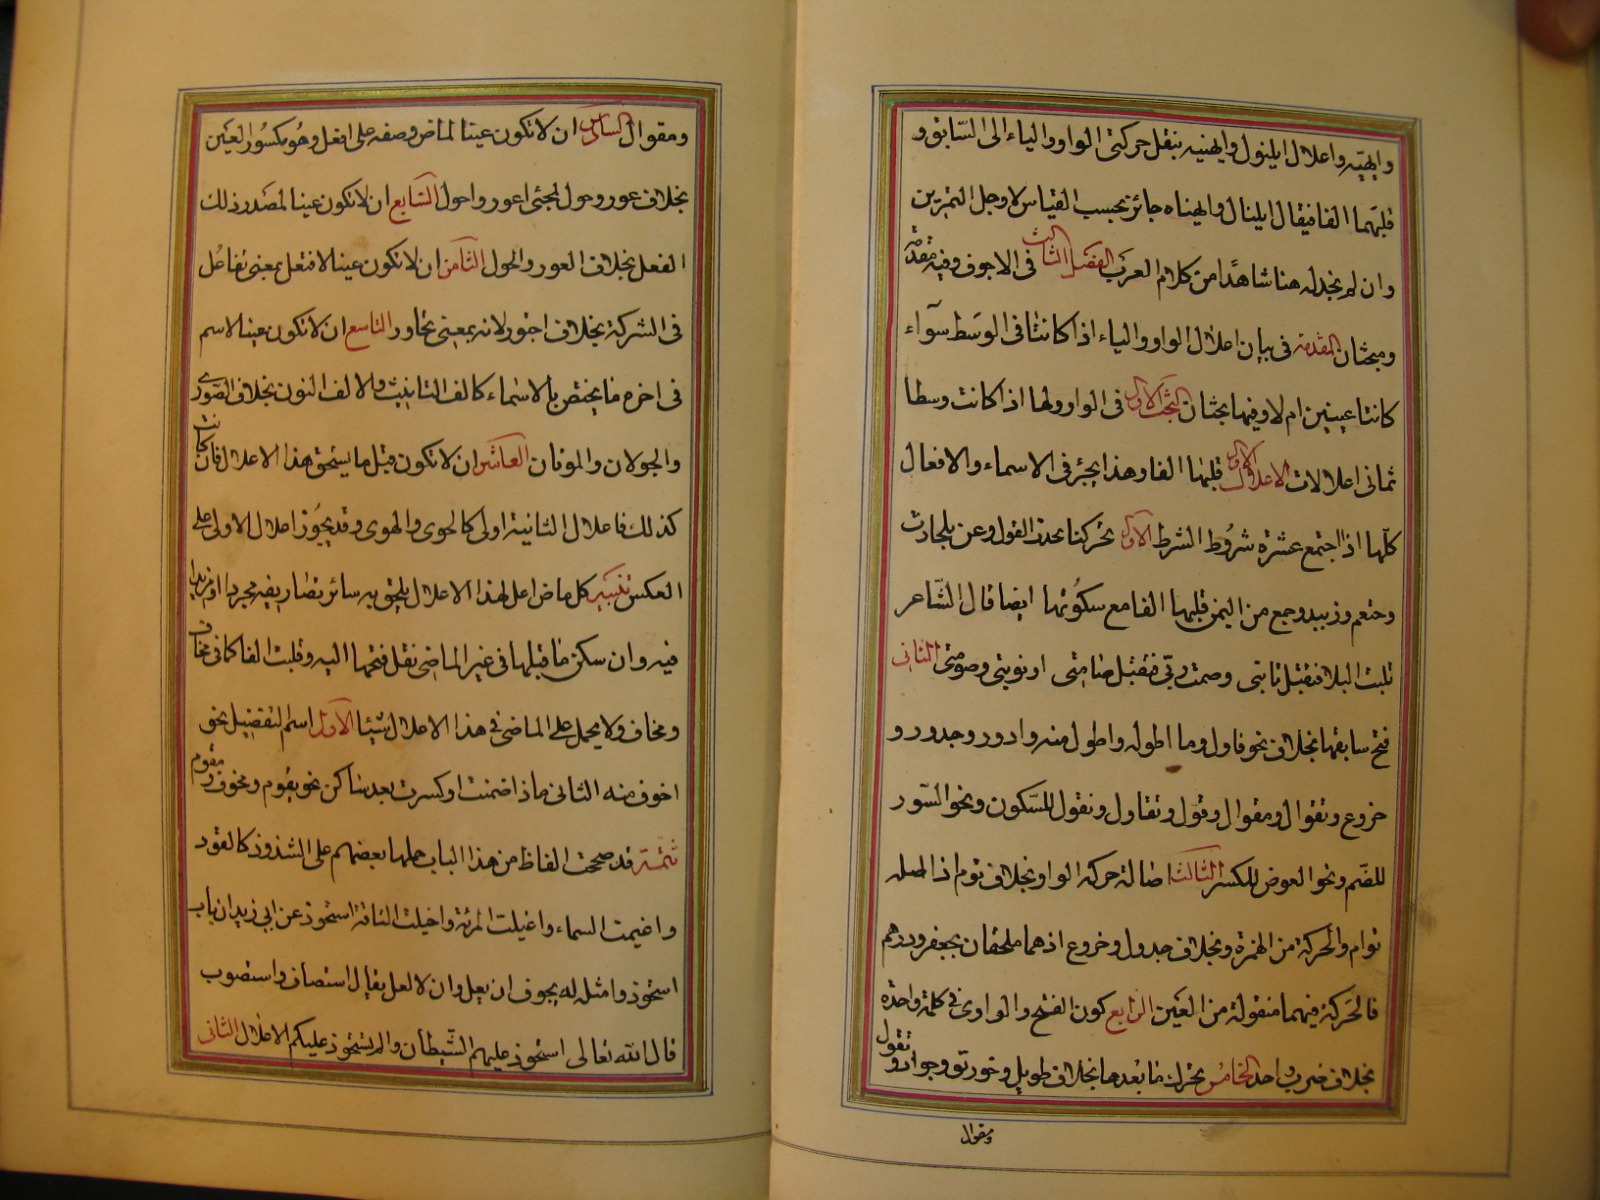 وايهيّه واعلال ايلنول وايهنيه بنقل حركتى الواو والياء الى السّابق و
قلبهما الفا فيقال ايلنال وايهناه جائز بحسب القياس لاجل التمرين
وان لم نجد له هنا شاهدًا من كلام العرب الفصل الثالث فى الاجوف وفيه مقدمة
ومبحثان المقدمة فى بيان اعلال الواو والياء اذا كانتا فى الوسط سوآء
كانتا عينين ام لا وفيها بحثان البحث الاول فى الواو ولها اذا كانت وسطا
ثمانى اعلالات الاعلال الاول قلبها الفا وهذا يجئ فى الاسماء والافعال
كلّها اذا اجتمع عشرة شروط الشرط الاول تحركها القول وعن بلحارث
وخثعم وزبيد من اليمن قلبها الفا مع سكونها ايضا قال الشّاعر
تبت اليك فتقبل تابتى وصمت ربّى فتقبل صامتى اى توبتى وصومتى الثانى
فتح سابقها بخلاف نحو قاول وما اطوله واطول منه وادور وجدور و
خروع وتقوال ومقوال وقوّل وتقاول وتقول للسّكون ونحو السّور
للضّم ونحو العوض للكسر الثالث اصالة حركة الواو بخلاف توم اذ اصله
توام والحركة من الهمزة وبخلاف جدول وخروع اذ هما ملحقان بجعفر ودرهم
فالحركة فيهما منقولة من العين الرابع كون الفتح والواو فى كلمة واحدة
بخلاف ضرب واحد الخامس تحرك ما بعدها بخلاف طويل وخورنق وجواد وتقول
ومقوال
ومقوال السادس ان لا تكون عينا لماض وصفه على افعل وهو مكسور العين
بخلاف عور وحول لمجئ اعور واحول السّابع ان لا تكون عينا لمصدر ذلك
الفعل بخلاف العور والحول الثامن ان لا تكون عينا لافتعل بمعنى تفاعل
فى الشركة بخلاف اجتور لانه بمعنى تجاور التاسع ان لا تكون عينا لاسم
فى اخره ما يختص بالاسماء كالف التانيث والالف النون بخلاف الصّورى
والجولان والموتان العاشر ان لا تكون قبل ما يستحق هذا الاعلال فان كانت
كذلك فاعلال الثانية اولى كالحوى والهوى وقد يجوز اعلال الاولى على
العكس تنبيه كل ماض اعل لهذا الاعلال يلحق به سائر تصاريفه مجردا او مزيدا
فيه وان سكن ما قبلها فى غير الماضى نقل فتحها اليه وقلبت الفا كما فى يخاف
ومخاف ولا يحمل على الماضى فى هذا الاعلال شيئا الاول اسم التفضيل نحو
اخوف منه الثانى ما اذا ضمت او كسرت بعد ساكن نحو يقوم ومخوف ومقوم
تتمّة قد صحت الفاظ من هذا الباب حملها بعضهم على الشذوذ كالقود
واغيمت السماء واغيلت المرئة واخيلت الناقة استحوذ عن ابى زيد ان باب
استحوذ وامثله له يجوز ان يعل وان لا يعل يقال استصاف واستصوب
قال الله تعالى استحوذ عليهم الشّيطان والم نستحوذ عليكم الاعلال الثانى